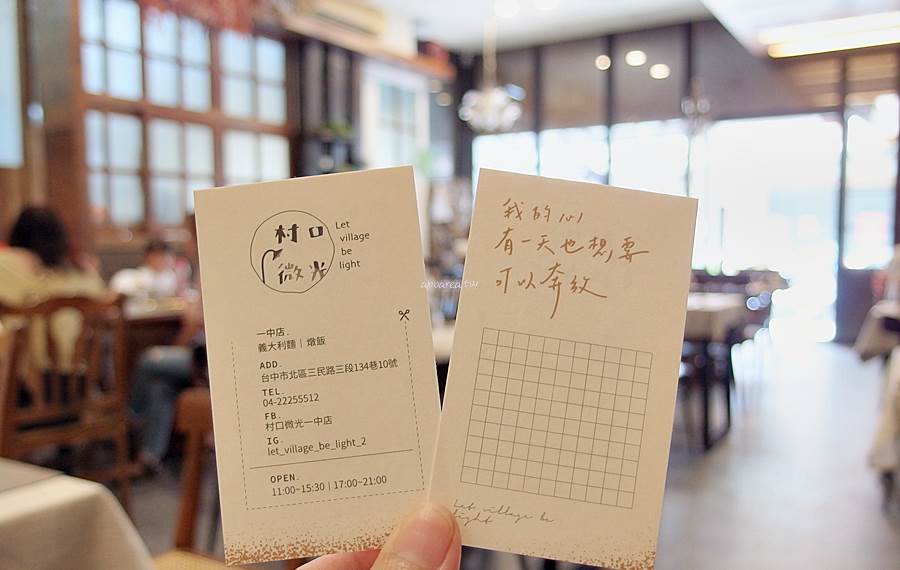 村口
微光
Let
village
be
light
一中店.
義大利麵｜燉飯
ADD.
台中市北區三民路三段134巷10號
TEL.
04-22255512
FB.
村口微光一中店
IG.
let_village_be_light_2
OPEN.
11:00~15:30｜17:00~21:00
我的心
有一天也想要
可以奔放
Let village be
light